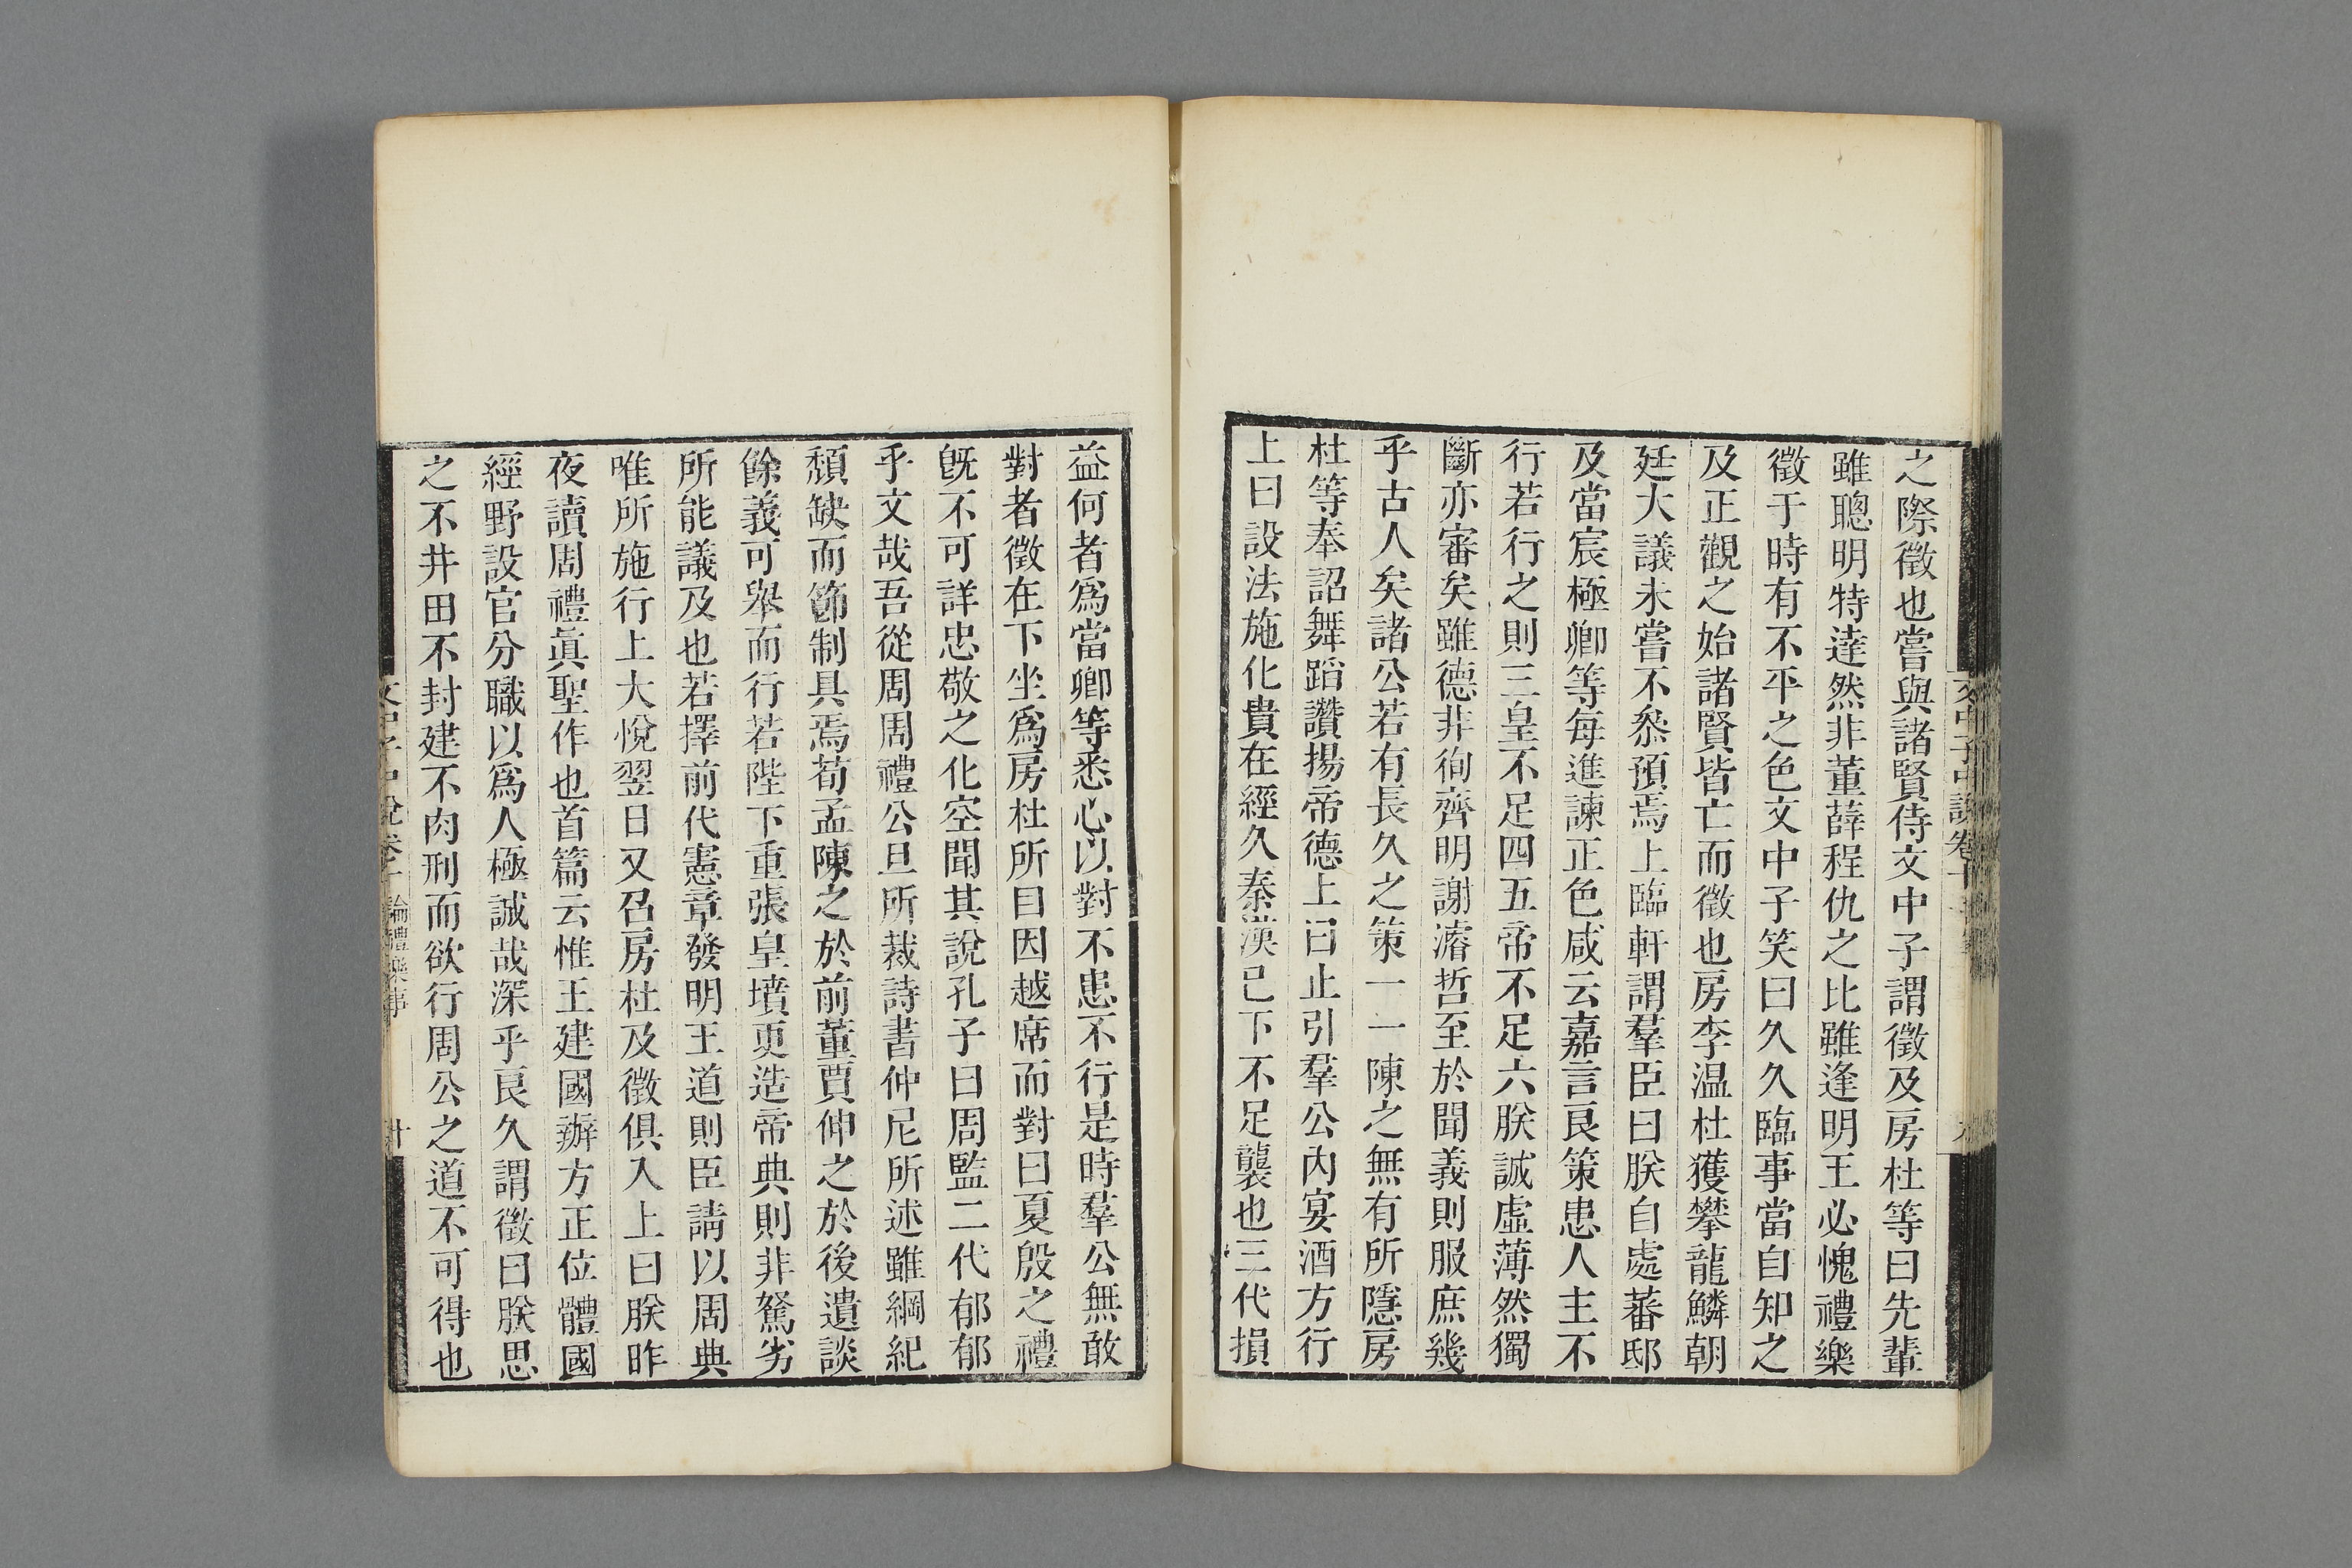 之際徵也嘗與諸賢侍文中子謂徵及房杜等曰先輩
雖聰明特達然非董薛程仇之比雖逢明王必愧禮樂
徵于時有不平之色文中子笑曰久久臨事當自知之
及正觀之始諸賢皆亡而徵也房李温杜獲攀龍鱗朝
廷大議未嘗不叅預焉上臨軒謂羣臣曰朕自處蕃邸
及當宸極卿等每進諫正色咸云嘉言良策患人主不
行若行之則三皇不足四五帝不足六朕誠虛薄然獨
斷亦審矣雖德非徇齊明謝濬哲至於聞義則服庶幾
乎古人矣諸公若有長久之策一一陳之無有所隱房
杜等奉詔舞蹈讚揚帝德上曰止引羣公內宴酒方行
上曰設法施化貴在經久秦漢已下不足襲也三代損
益何者爲當卿等悉心以對不患不行是時羣公無敢
對者徵在下坐爲房杜所目因越席而對曰夏殷之禮
旣不可詳忠敬之化空聞其說孔子曰周監二代郁郁
乎文哉吾從周周禮公旦所裁詩書仲尼所述雖綱紀
頹缺而節制具焉荀孟陳之於前董賈伸之於後遺談
餘義可舉而行若陛下重張皇墳更造帝典則非駑劣
所能議及也若擇前代憲章發明王道則臣請以周典
唯所施行上大悅翌日又召房杜及徵俱入上曰朕昨
夜讀周禮眞聖作也首篇云惟王建國辨方正位體國
經野設官分職以爲人極誠哉深乎良久謂徵曰朕思
之不井田不封建不肉刑而欲行周公之道不可得也
文中子中說卷十 論禮樂事 十